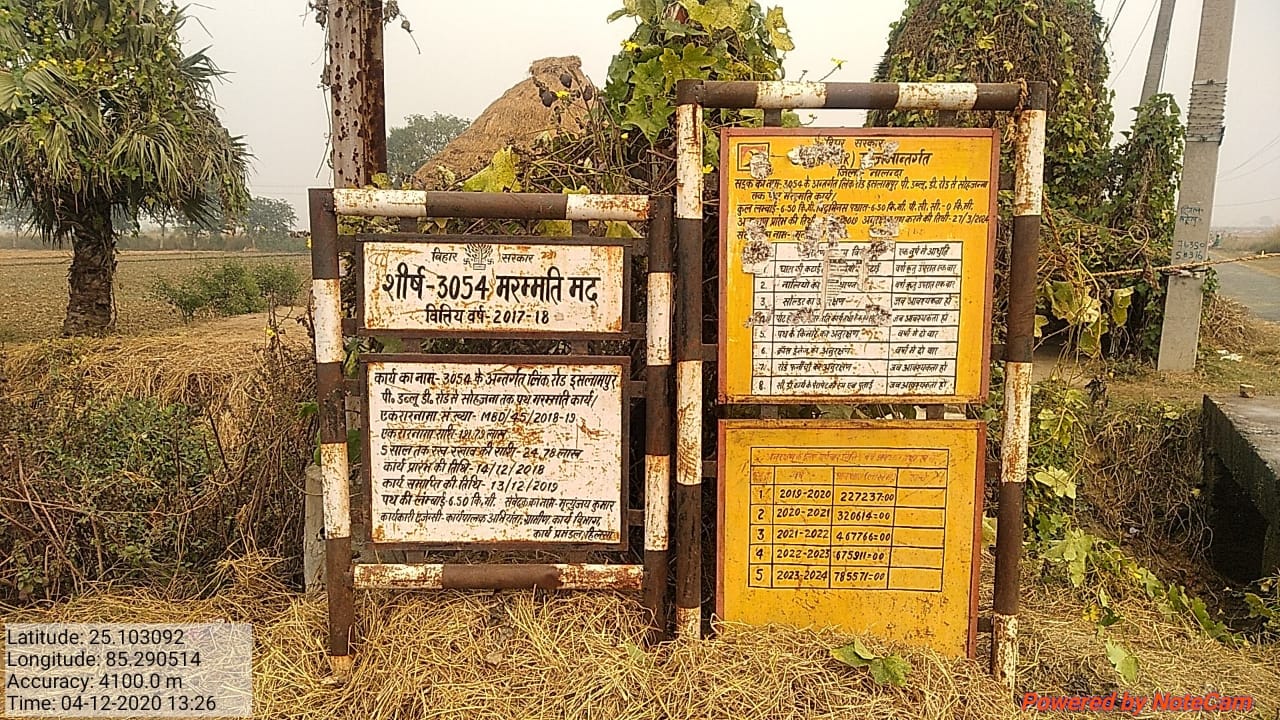 बिहार सरकार
शीर्ष-3054 मरम्मति मद
वित्तिय वर्ष-2017-18
कार्य का नाम-3054 के अन्तर्गत लिंक रोड इसलामपुर
पी० डब्लू डी० रोड से सोहजना तक पथ मरम्मति कार्य/
एकरारनामा संख्या- MBD/45/2018-19
एकरारनामा राशि-
5 साल तक रख रखाव की राशी-24.78 लाख
कार्य प्रारंभ की तिथि-14/12/2018
कार्य समाप्ति की तिथि-13/12/2019
पथ की लम्बाई 6.50 कि.मी. संवेदक का नाम-मृत्युंजय कुमार
कार्यकारी एजेन्सी-कार्यपालक अभियंता, ग्रामीण कार्य विभाग,
कार्य प्रमंडल, हिलसा
बिहार सरकार
अन्तर्गत
जिला- नालन्दा
सड़क का नाम-3054 के अन्तर्गत लिंक रोड इसलामपुर पी. डब्लू. डी. रोड से सोहजना
तक पथ मरम्मति कार्य/
कुल लम्बाई-6.50 कि.मी. बिटुमिनस पथांश-6.50 कि.मी. पी.सी.सी.-0 कि.मी.
प्राप्त की तिथि 2019 अनुरक्षण समाप्त करने की तिथि-27/3/2024
एक वर्ष में आवृति
घास की कटाई वर्षा ऋतु उपरांत एक बार
2. नालियों की वर्षा ऋतु उपरांत एक बार
3. सोल्डर का अनुरक्षण जब आवश्यकता हो
4. जब आवश्यकता हो
5. पथ के किनारे का अनुरक्षण वर्ष में दो बार
6. क्रॉस ड्रेनेज का अनुरक्षण- वर्ष में दो बार
7. रोड फर्नीचर का अनुरक्षण- जब आवश्यकता हो
8. सी.डी. कार्य के पैरापेट की रंग एवं पुताई जब आवश्यकता हो
वर्ष
1 2019-2020 227237=00
2 2020-2021 320614=00
3 2021-2022 467766=00
4 2022-2023 675911=00
5 2023-2024 785571=00
Latitude: 25.103092
Longitude: 85.290514
Accuracy: 4100.0 m
Time: 04-12-2020 13:26
Powered by NoteCam